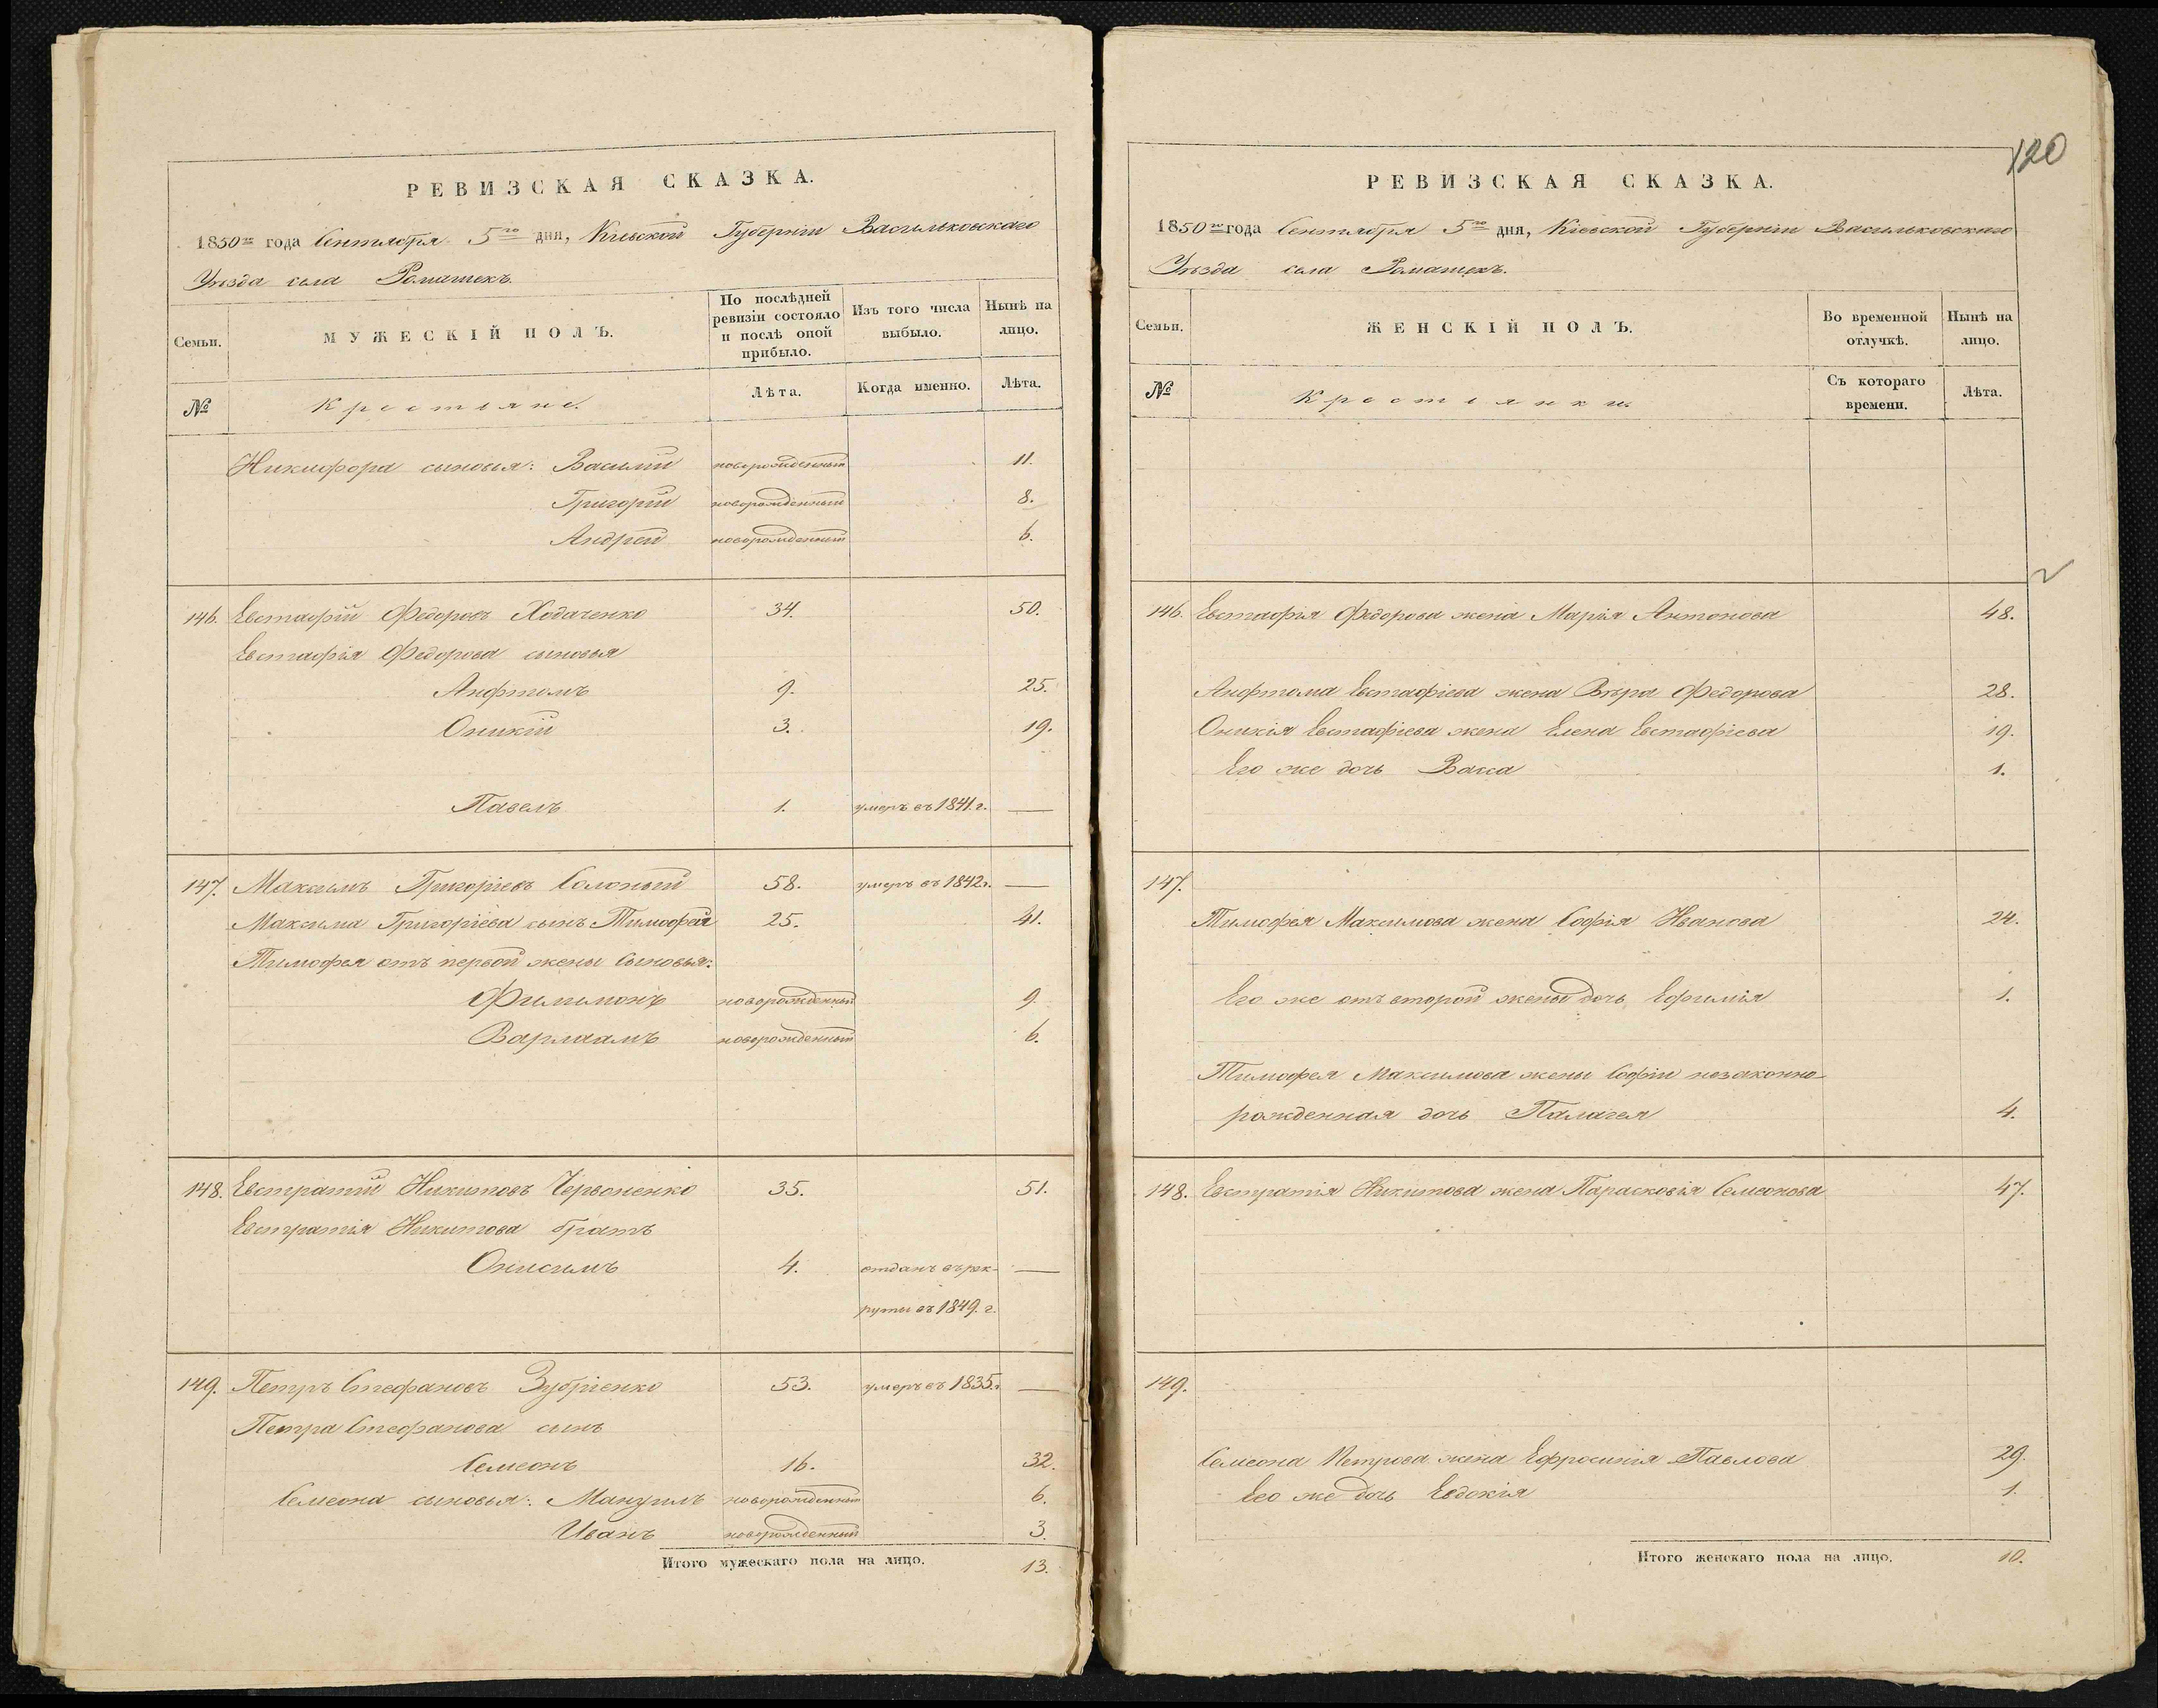 РЕВИЗСКАЯ СКАЗКА.
1850го года Сентября 5го дня, Кіевской Губерніи Васильковскаго
Уѣзда села Ромашекъ.
Семьи.
МУЖЕСКІЙ ПОЛЪ.
По послѣдней ревизіи состояло и послѣ оной прибыло.
Изъ того числа выбыло.
Нынѣ на лицо.
№
Крестьяне.
Лѣта.
Когда именно.
Лѣта.
Никифора сыновья: Василій новорожденный 11.
Григорій новорожденный 8.
Андрей новорожденный 6.
146. Евстафій Федоровъ Ходаченко 34. 50.
Евстафія Федорова сыновья
Анфтомъ 9. 25.
Оникій 3. 19.
Павелъ 1. умеръ въ 1841. г. —
147. Максимъ Григоріевъ Солоный 58. умеръ въ 1842 г. —
Максима Григоріева сынъ Тимофей 25. 41.
Тимофея отъ первой жены сыновья:
Филимонъ новорожденный 9.
Варлаамъ новорожденный 6.
148. Евстратій Никитовъ Червоненко 35. 51.
Евстратія Никитова братъ
Онисимъ 4. отданъ въ рек- —
руты въ 1849. г.
149. Петръ Стефановъ Зубріенко 53. умеръ въ 1835 г. —
Петра Стефанова сынъ
Семеонъ 16. 32.
Семеона сыновья: Мануилъ новорожденный 6.
Иванъ новорожденный 3.
Итого мужескаго пола на лицо. 13.
120
РЕВИЗСКАЯ СКАЗКА.
1850го года Сентября 5го дня, Кіевской Губерніи Васильковскаго
Уѣзда села Ромашекъ.
Семьи.
ЖЕНСКІЙ ПОЛЪ.
Во временной отлучкѣ.
Нынѣ на лицо.
№
Крестьянки.
Съ котораго времени.
Лѣта.
146. Евстафія Федорова жена Марія Антонова 48.
Анфтома Евстафіева жена Вѣра Федорова 28.
Оникія Евстафіева жена Елена Евстафіева 19.
Его же дочь Васса 1.
147.
Тимофея Максимова жена Софія Иванова 24.
Его же отъ второй жены дочь Ефимія 1.
Тимофея Максимова жены Софіи незаконно-
рожденная дочь Палагея 4.
148. Евстратія Никитова жена Парасковія Семеонова 47.
149.
Семеона Петрова жена Ефросинія Павлова 29.
Его же дочь Евдокія 1.
Итого женскаго пола на лицо. 10.